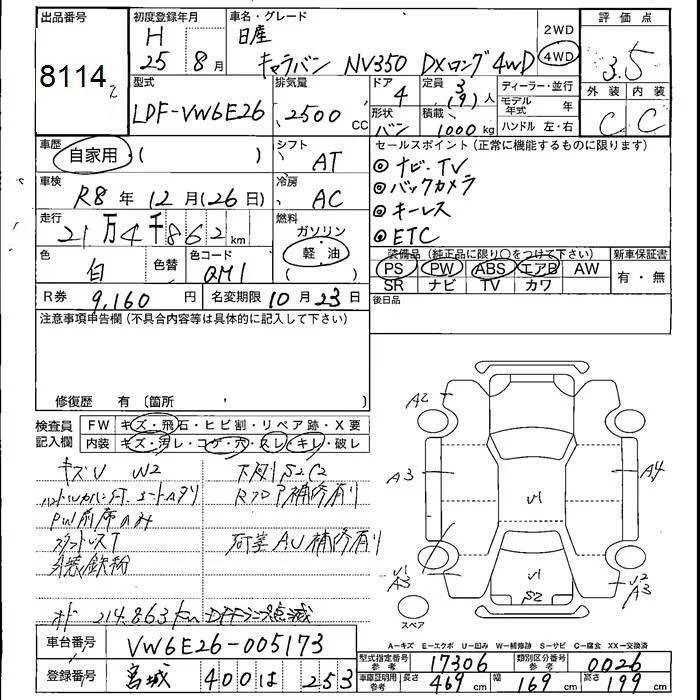 出品番号 8114
初度登録年月 H 25年 8月
車名・グレード 日産 キャラバン NV350 DXロング 4WD
2WD
4WD
評価点 3.5
外装 内装
C C
型式 LDF-VW6E26
排気量 2500 CC
ドア 4
形状 バン
定員 3(9)人
積載 1000 kg
ディーラー・並行
モデル年式 年
ハンドル 左・右
車歴 自家用 ( )
シフト AT
車検 R8年 12月(26日)
冷房 AC
走行 21万4千862 km
燃料 ガソリン
軽油
( )
色 白 色替 色コード QM1
R券 9,160円 名変期限 10月23日
セールスポイント(正常に機能するものに限ります)
◎ナビ・TV
◎バックカメラ
◎キーレス
◎ETC
装備品(純正品に限り○をつけて下さい) 新車保証書
PS PW ABS エアB AW 有・無
SR ナビ TV カワ
後日品
注意事項申告欄(不具合内容等は具体的に記入して下さい)
修復歴 有 〔箇所 )
検査員記入欄
FW キズ・飛石・ヒビ割・リペア跡・X要
内装 キズ・汚レ・コゲ・穴・スレ・キレ・破レ
キズU W2 下廻りS2C2
補修有り
PW前席のみ
外装鉄粉 AU補修有り
214,863km
車台番号 VW6E26-005173
登録番号 宮城 400 は 253
A2
A3
A4
U1
U1
A3
U1
S2
U2
A3
スペア
A…キズ E…エクボ U…凹み W…補修跡 S…サビ C…腐食 XX…交換済
型式指定番号 参考 17306 類別区分番号 参考 0026
車庫証明用 参考 長さ 469 cm 幅 169 cm 高さ 199 cm